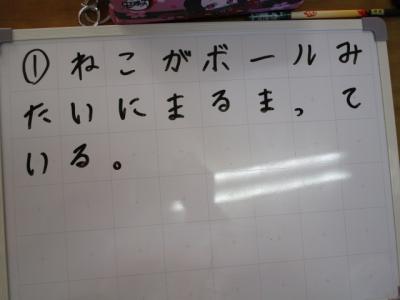 ①ねこがボールみ
たいにまるまって
いる。